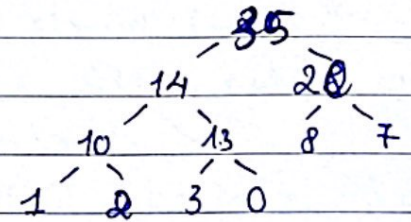 35
14
10 13 8 7
1 2 3 0